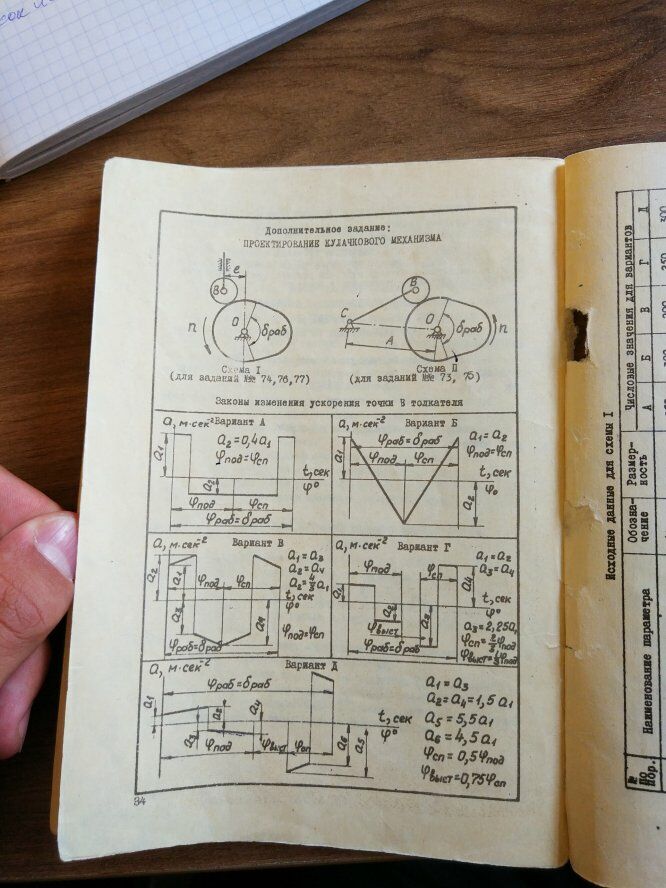 Дополнительное задание:
ПРОЕКТИРОВАНИЕ КУЛАЧКОВОГО МЕХАНИЗМА
e
B
n
O
δраб
Схема I
(для заданий №№ 74,76,77)
B
C
O
A
δраб
n
Схема II
(для заданий №№ 73, 75)
Законы изменения ускорения точки В толкателя
a, м·сек⁻² Вариант А
a₂=0,4a₁
φпод=φсп
a₁
a₂
t, сек
φ°
φпод
φсп
φраб=δраб
a, м·сек⁻² Вариант Б
φраб=δраб
φпод
φсп
a₁
a₂
a₁=a₂
φпод=φсп
t, сек
φ°
a, м·сек⁻² Вариант В
a₁=a₃
a₂=a₄
a₂=4/3a₁
t, сек
φ°
φпод=φсп
a₂
a₁
a₃
a₄
φпод
φсп
φраб=δраб
a, м·сек⁻² Вариант Г
a₁=a₂
a₃=a₄
t, сек
φ°
a₃=2,25a₁
φпод
φсп
a₁
a₂
a₄
φвыст
φраб=δраб
a, м·сек⁻² Вариант Д
φраб=δраб
a₁
a₂
a₃
a₄
a₅
a₆
t, сек
φ°
φпод
φвыст
φсп
a₁=a₃
a₂=a₄=1,5a₁
a₅=5,5a₁
a₆=4,5a₁
φсп=0,5φпод
φвыст=0,75φсп
34
Исходные данные для схемы I
№
по
пор.
Наименование параметра
Обозна-
чение
Размер-
ность
Числовые значения для вариантов
А
Б
В
Г
Д